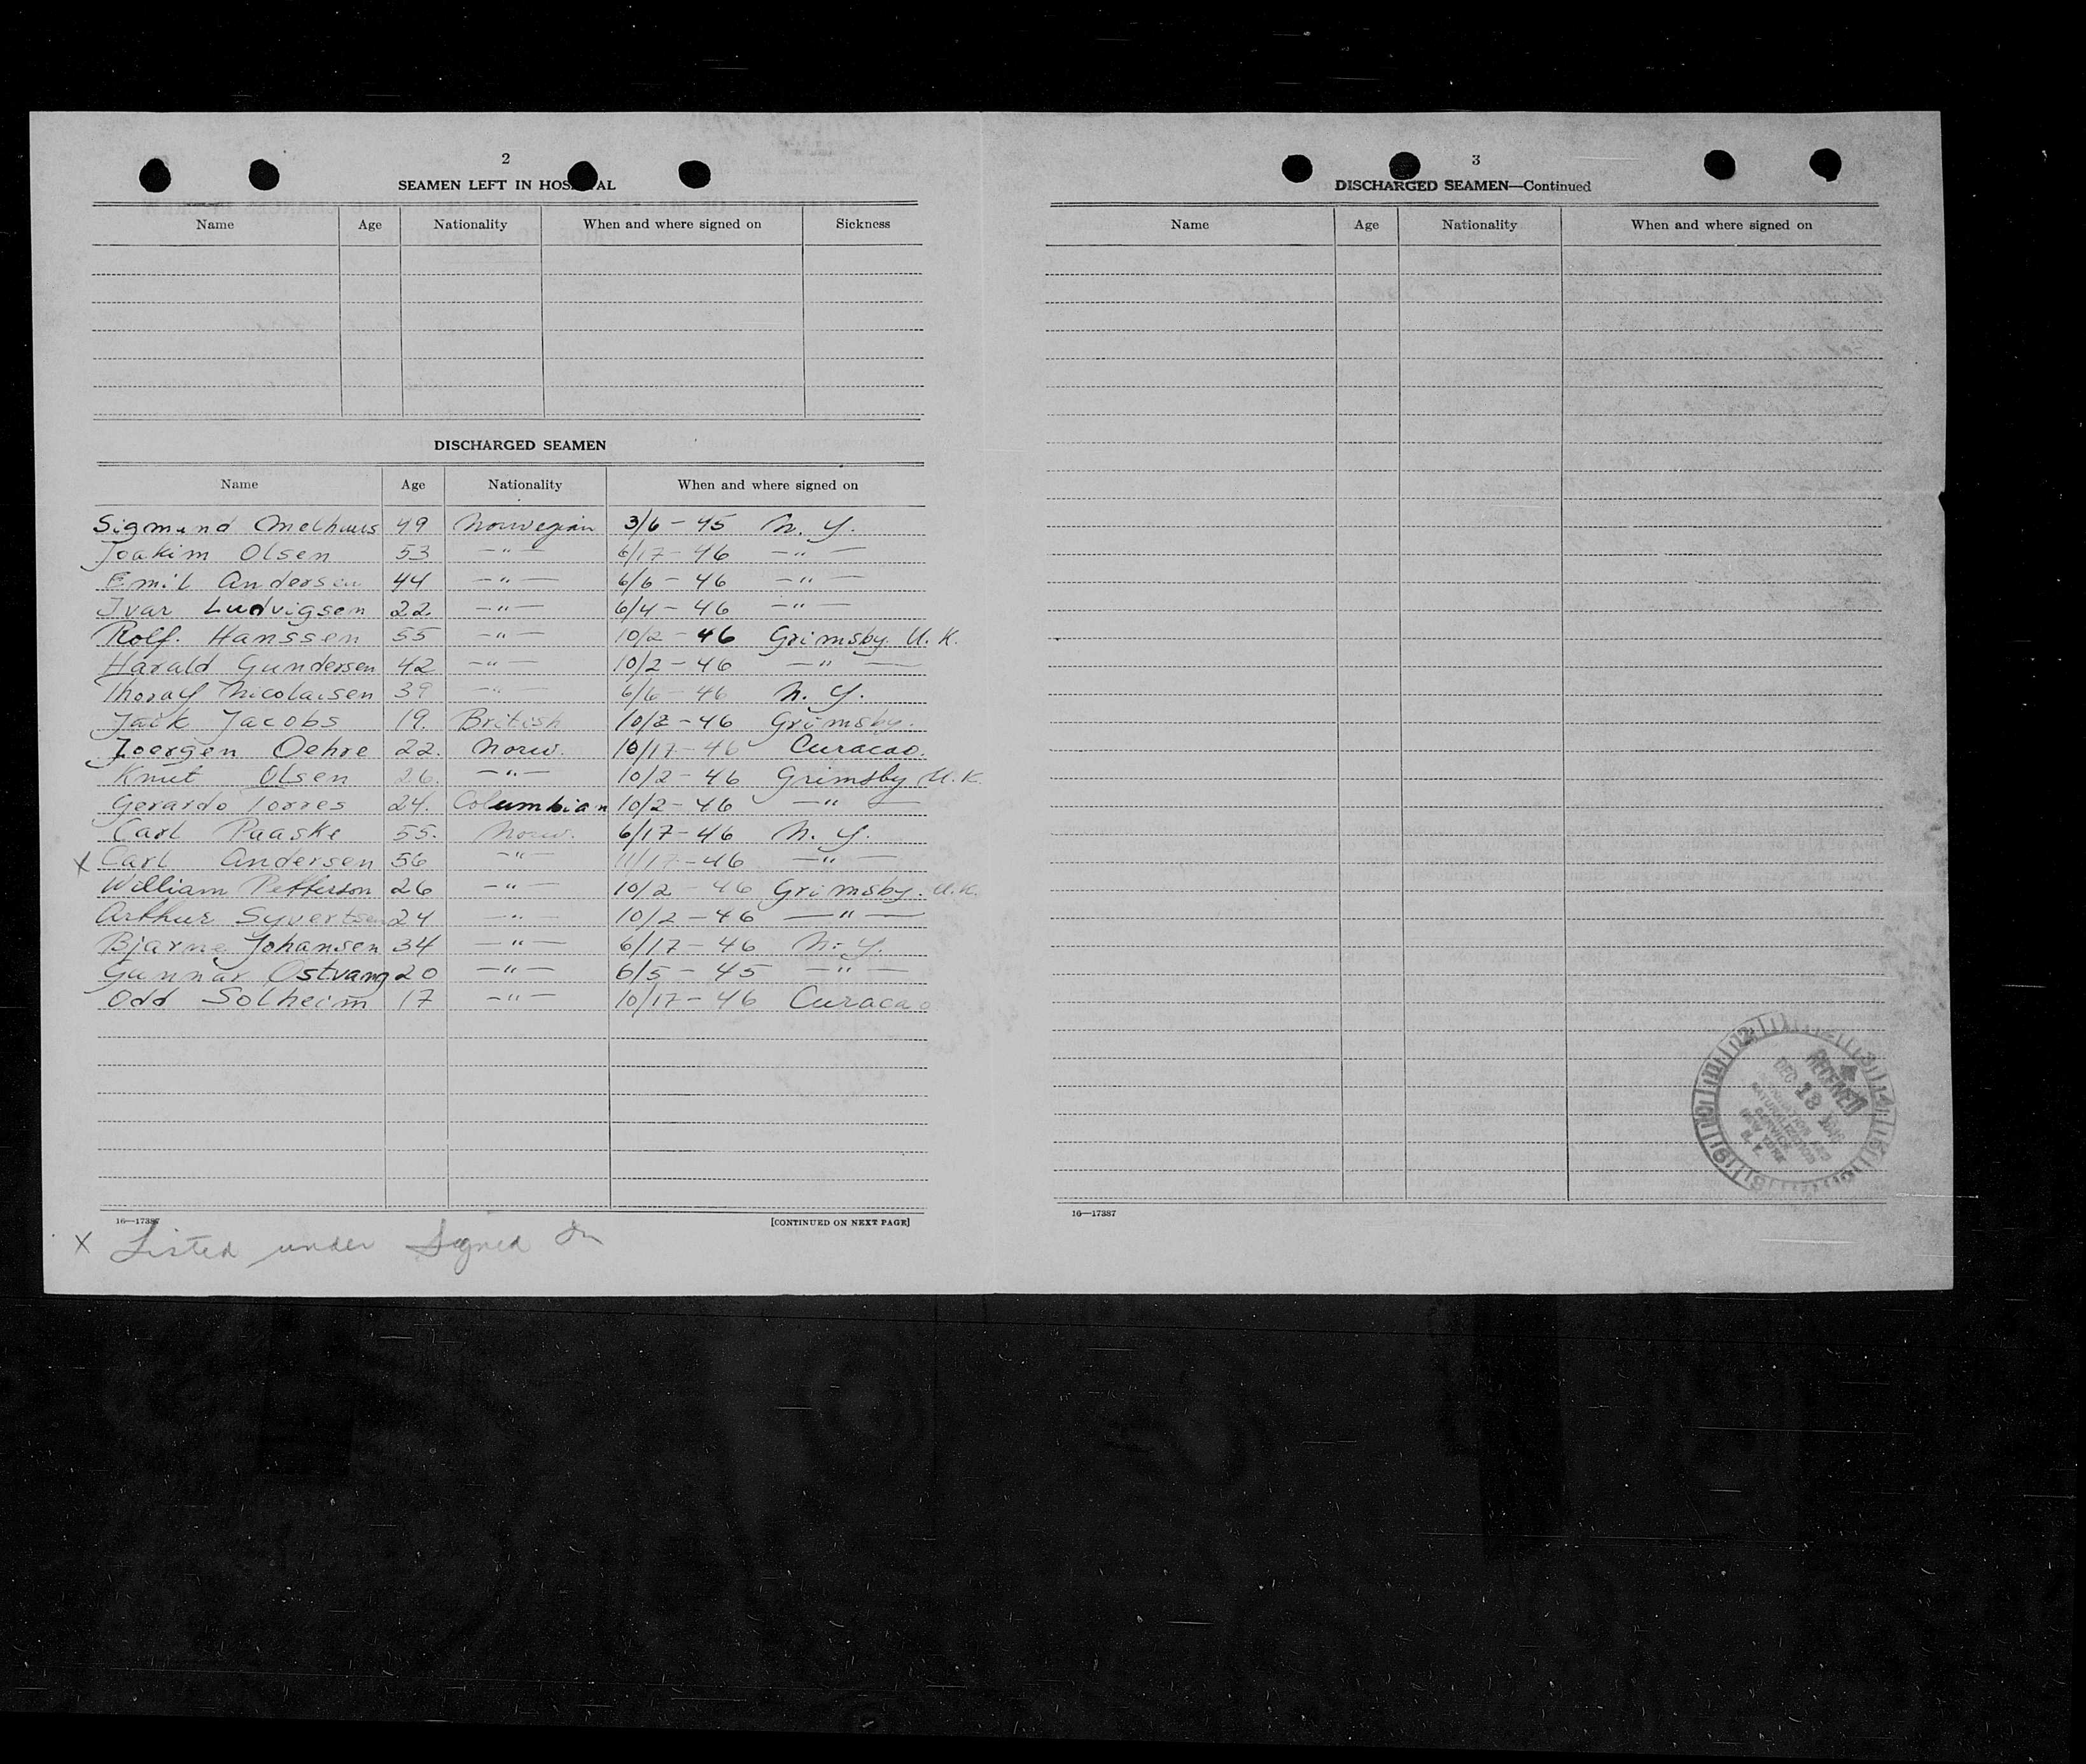 2
SEAMEN LEFT IN HOSPITAL
Name Age Nationality When and where signed on Sickness
DISCHARGED SEAMEN
Name Age Nationality When and where signed on
Sigmund Melhuus 49 Norwegian 3/6 - 45 N. Y.
Joakim Olsen 53 — " — 6/17 - 46 — " —
Emil Andersen 44 — " — 6/6 - 46 — " —
Ivar Ludvigsen 22. — " — 6/4 - 46 — " —
Rolf. Hanssen 55 — " — 10/2 - 46 Grimsby. U. K.
Harald Gundersen 42 — " — 10/2 - 46 — " —
Thoralf Nicolaisen 39 — " — 6/6 - 46 N. Y.
Jack Jacobs 19. British 10/2 - 46 Grimsby.
Joergen Oehre 22. Norw. 10/17 - 46 Curacao.
Knut Olsen 26. — " — 10/2 - 46 Grimsby U. K.
Gerardo Torres 24. Columbian 10/2 - 46 — " —
Carl Paaske 55. Norw. 6/17 - 46 N. Y.
X Carl Andersen 56 — " — 11/17 - 46 — " —
William Pefferson 26 — " — 10/2 - 46 Grimsby. U. K.
Arthur Syvertsen 24 — " — 10/2 - 46 — " —
Bjarne Johansen 34 — " — 6/17 - 46 N. Y.
Gunnar Ostvang 20 — " — 6/5 - 45 — " —
Odd Solheim 17 — " — 10/17 - 46 Curacao
16—17387 [CONTINUED ON NEXT PAGE]
X Listed under Signed On
3
DISCHARGED SEAMEN—Continued
Name Age Nationality When and where signed on
RECEIVED
DEC 18 1946
IMMIGRATION AND
NATURALIZATION
SERVICE
NEW YORK
N. Y.
16—17387